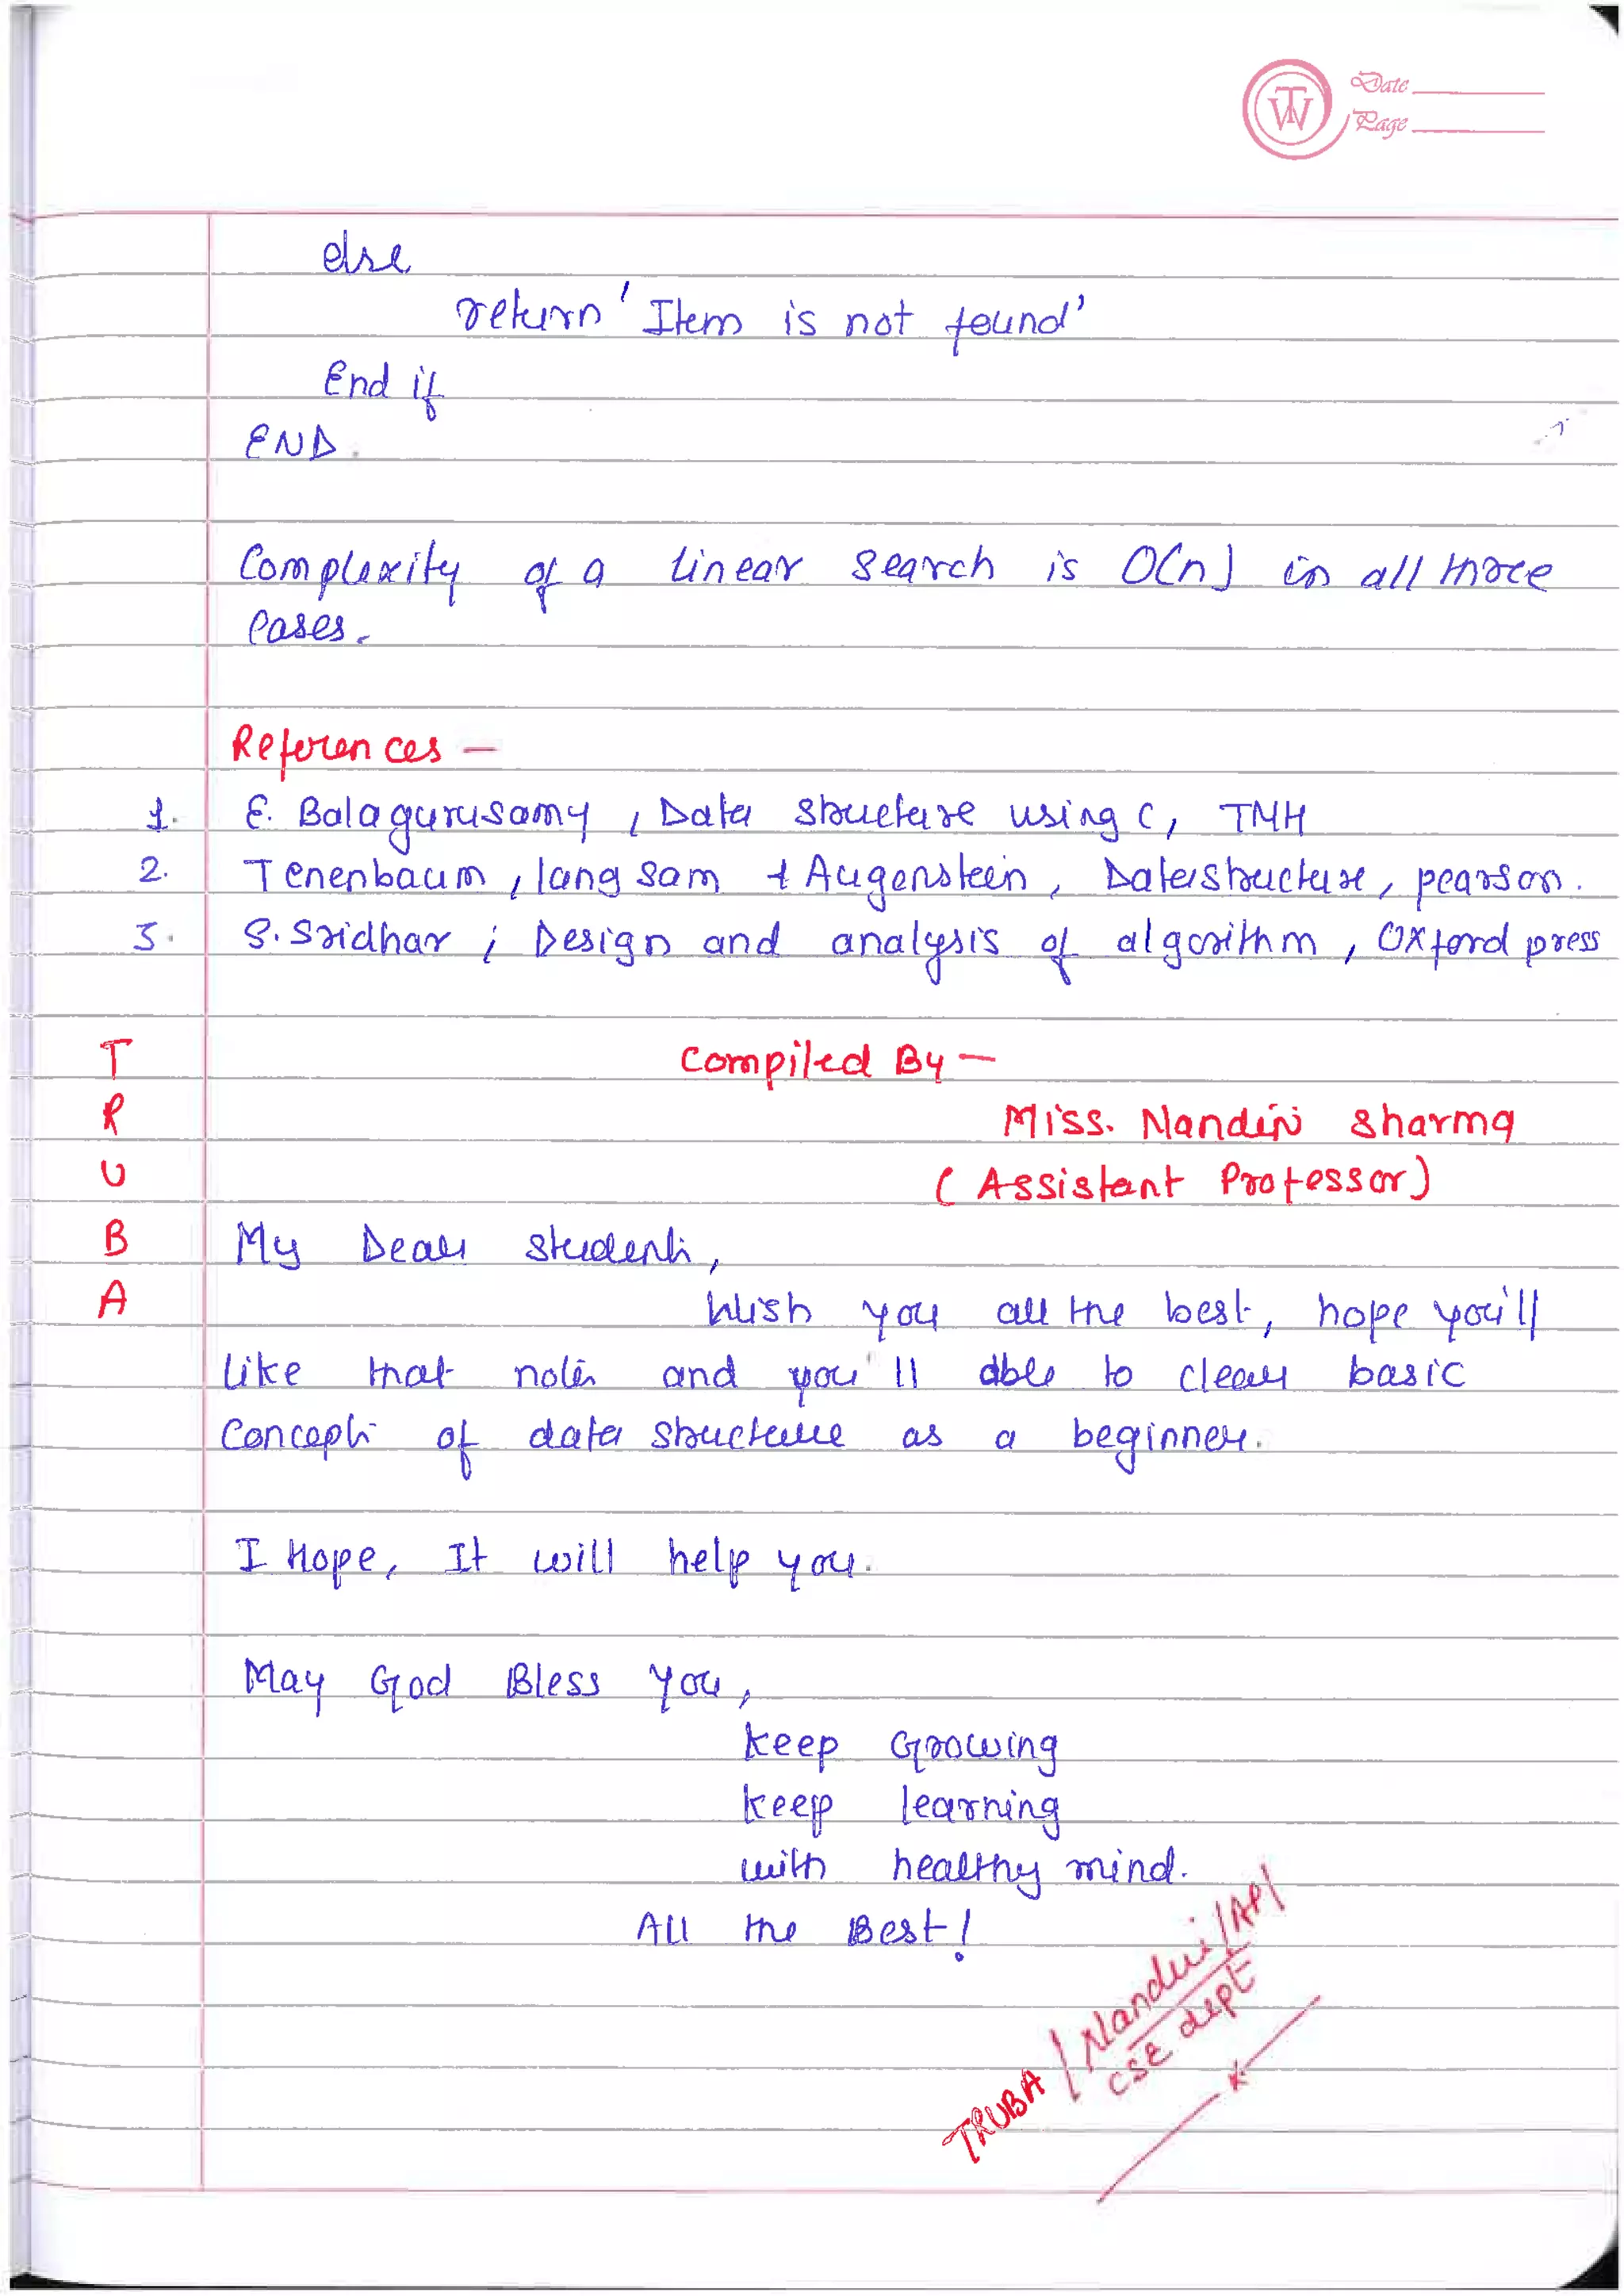 TW
Date
Page
else
return 'Item is not found'
End if
END.
Complexity of a linear search is O(n) in all three
cases.
References —
1. E. Balagurusamy, Data structure using C, TMH
2. Tenenbaum, lang sam & Augenstein, Data structure, pearson.
3. S. Sridhar; Design and analysis of algorithm, Oxford press
T
R
U
B
A
Compiled By —
Miss. Nandini Sharma
(Assistant Professor)
My Dear students,
Wish you all the best, hope you'll
like that notes and you'll able to clear basic
Concepts of data structure as a beginner.
I Hope, It will help you.
May God Bless You,
keep Growing
keep learning
with healthy mind.
All the Best!
TRUBA | Nandini/AP|
CSE dept